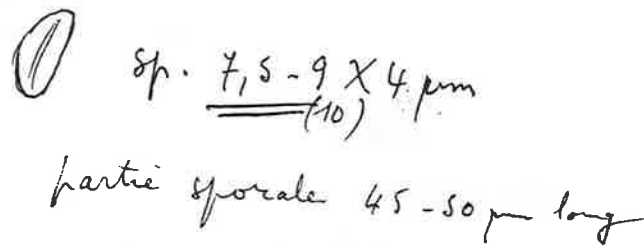 sp. 7,5-9 X 4 µm
(10)
partie sporale 45-50 µm long